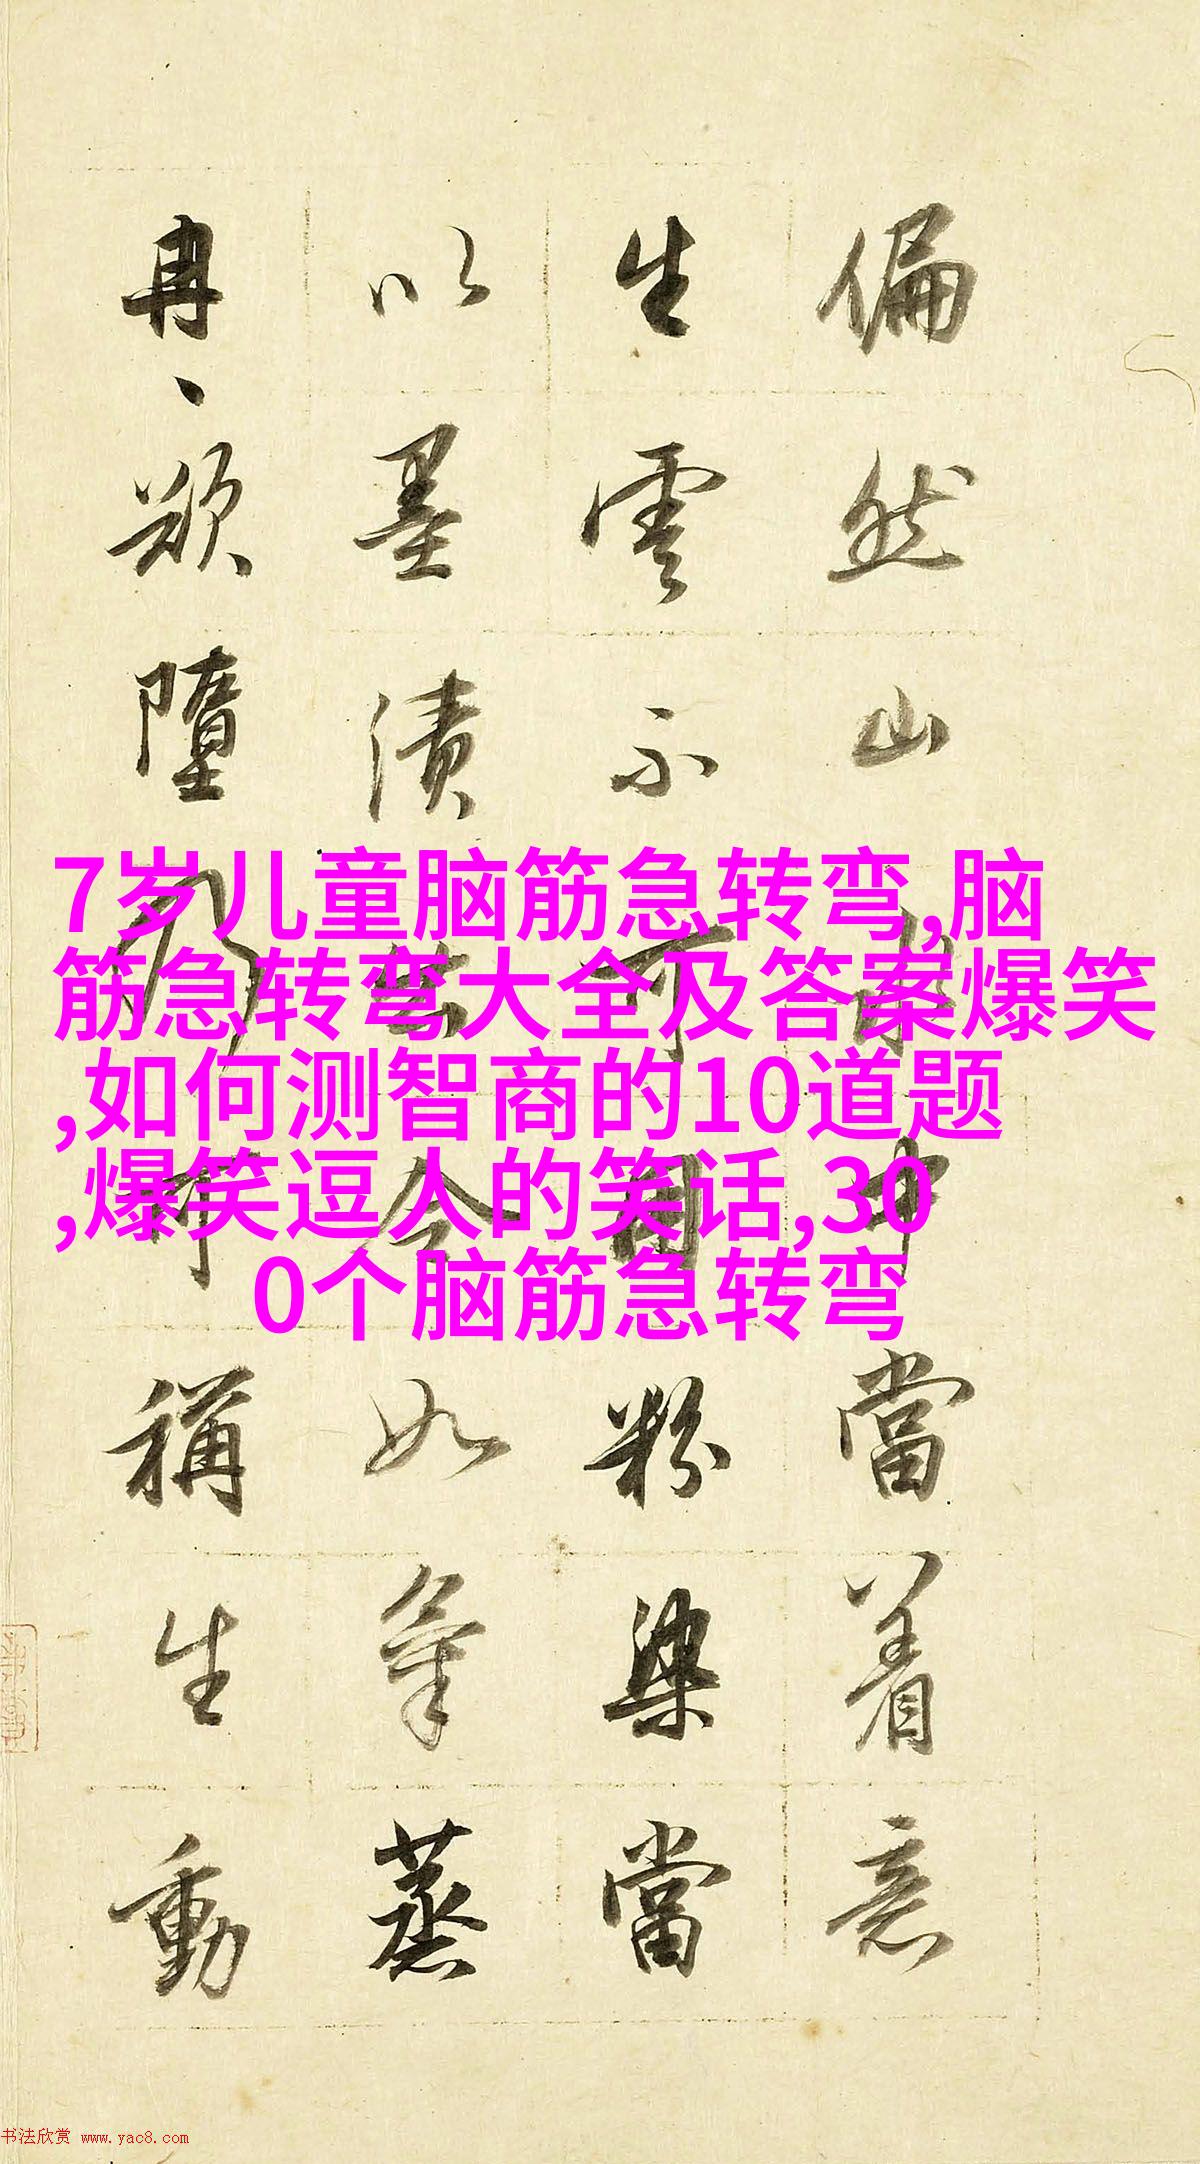 偏然山水中當着意
生雲不可用粉染當
以墨漬出令如氣蒸
冉、欲墮乃可稱生動
7岁儿童脑筋急转弯,脑
筋急转弯大全及答案爆笑
,如何测智商的10道题
,爆笑逗人的笑话,30
0个脑筋急转弯
书法欣赏 www.yac8.com